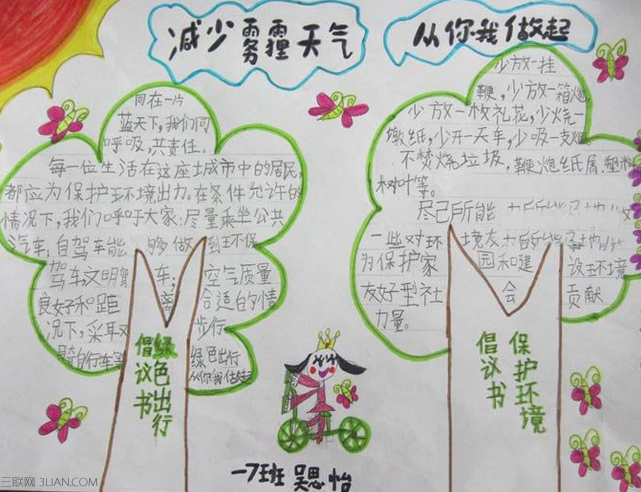 减少雾霾天气
从你我做起
同在一片
蓝天下,我们同
呼吸,共责任。
每一位生活在这座城市中的居民,
都应为保护环境出力。在条件允许的
情况下,我们呼吁大家:尽量乘坐公共
汽车,自驾车能够做到环保
驾车文明驾车;空气质量
良好和距离合适的情
况下,采取步行
自行车等绿色出行
从你我做起
绿色出行
倡议书
少放一挂
鞭,少放一箱炮,
少放一枚礼花,少烧一
墩纸,少开一天车,少吸一支烟,
不焚烧垃圾,鞭炮纸屑,塑料
树叶等。
尽己所能
一些对环境友
为保护家园和建设环境
友好型社会贡献
力量。
保护环境
倡议书
一7班 吴思怡
三联网 3LIAN.COM